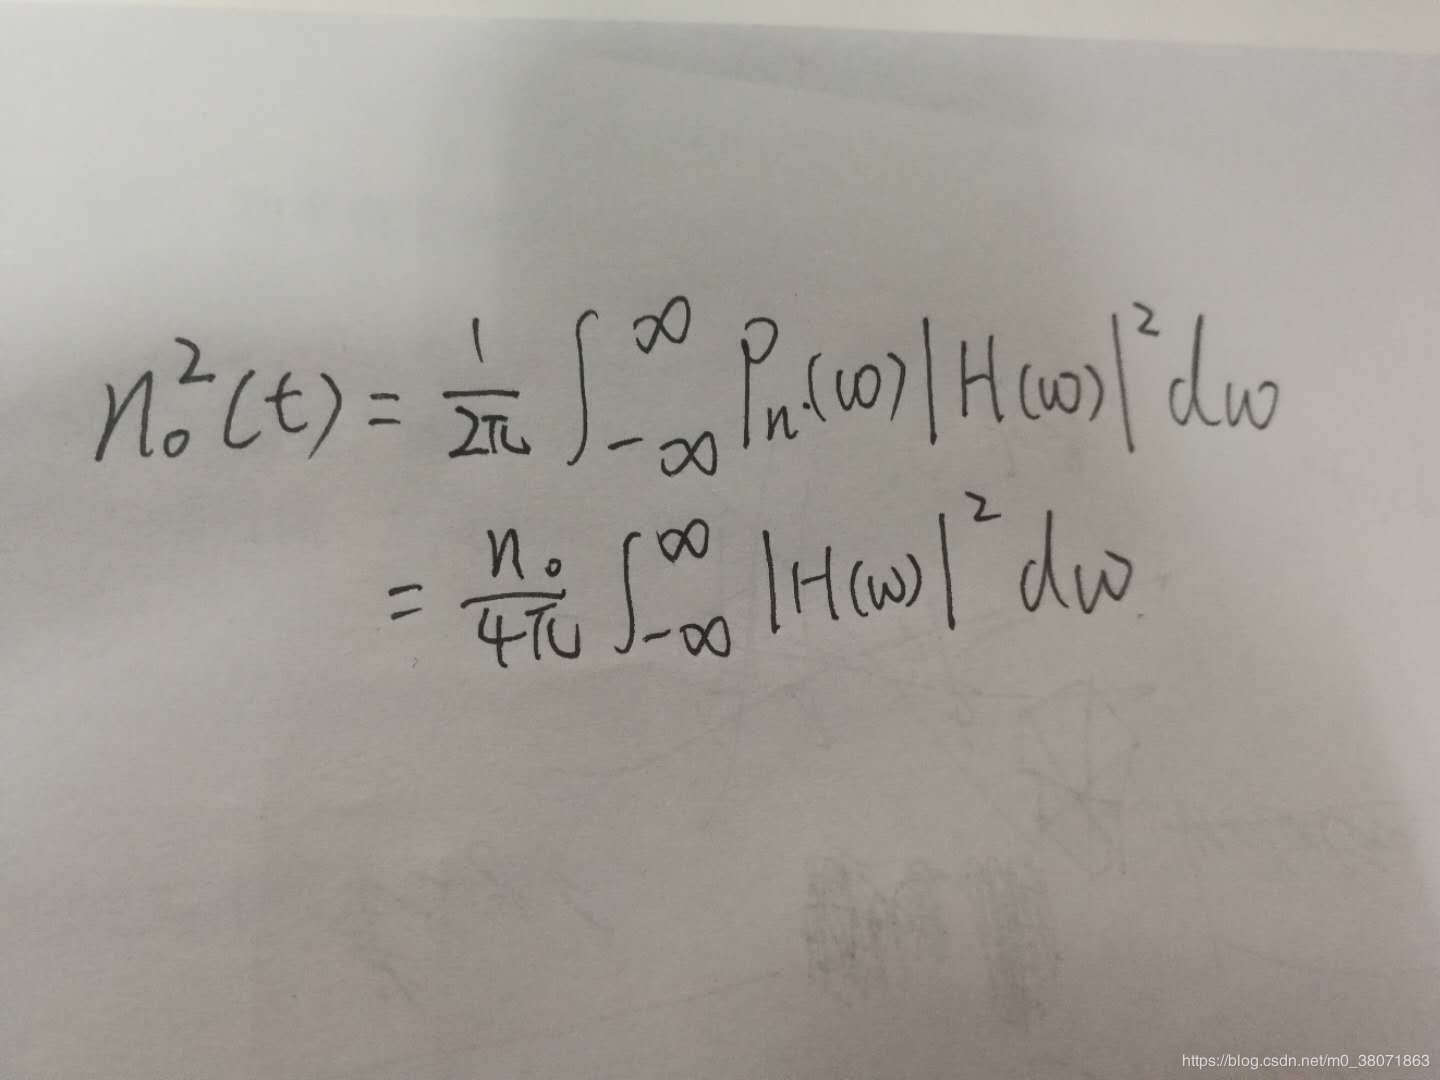 n₀²(t) = 1/2π ∫_{-∞}^{∞} Pn.(ω)|H(ω)|² dω
= n₀/4π ∫_{-∞}^{∞} |H(ω)|² dω
https://blog.csdn.net/m0_38071863